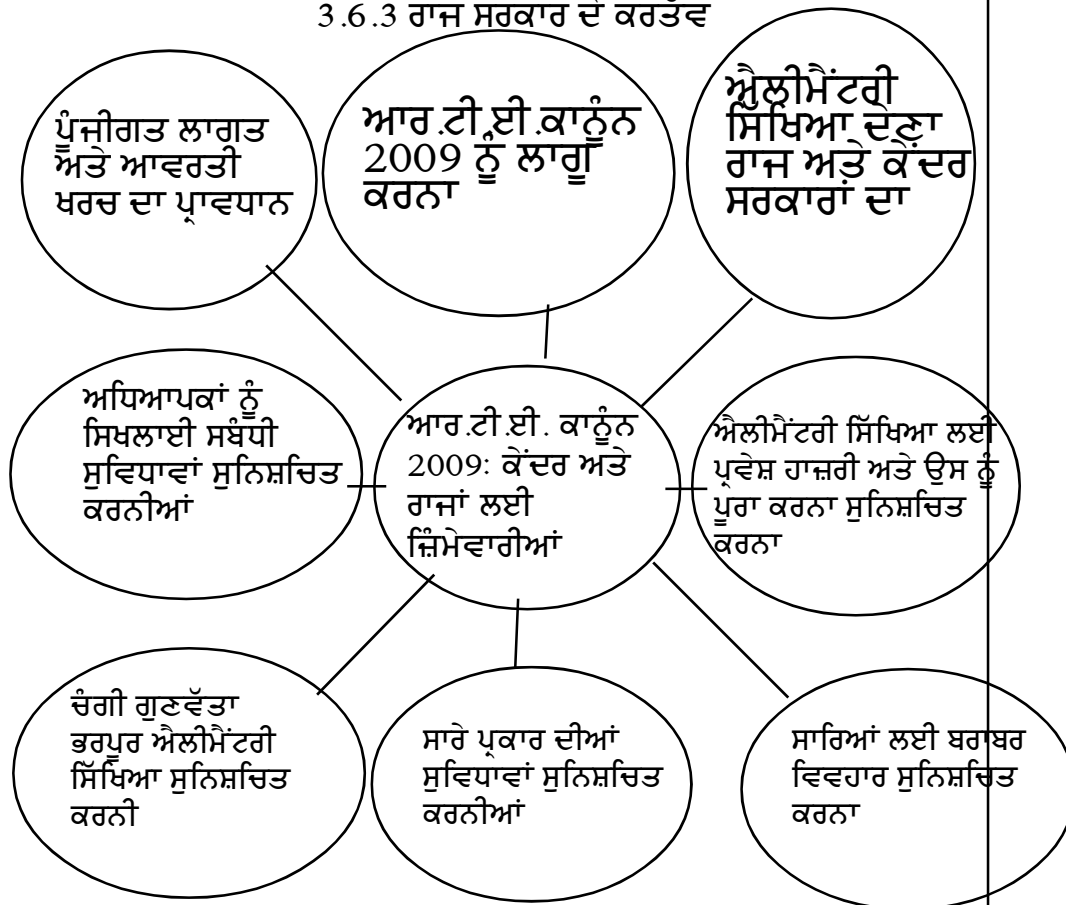 3.6.3 ਰਾਜ ਸਰਕਾਰ ਦੇ ਕਰਤੱਵ
ਪੂੰਜੀਗਤ ਲਾਗਤ
ਅਤੇ ਆਵਰਤੀ
ਖਰਚ ਦਾ ਪ੍ਰਾਵਧਾਨ
ਆਰ.ਟੀ.ਈ.ਕਾਨੂੰਨ
2009 ਨੂੰ ਲਾਗੂ
ਕਰਨਾ
ਐਲੀਮੈਂਟਰੀ
ਸਿੱਖਿਆ ਦੇਣਾ
ਰਾਜ ਅਤੇ ਕੇਂਦਰ
ਸਰਕਾਰਾਂ ਦਾ
ਅਧਿਆਪਕਾਂ ਨੂੰ
ਸਿਖਲਾਈ ਸਬੰਧੀ
ਸੁਵਿਧਾਵਾਂ ਸੁਨਿਸ਼ਚਿਤ
ਕਰਨੀਆਂ
ਆਰ.ਟੀ.ਈ. ਕਾਨੂੰਨ
2009: ਕੇਂਦਰ ਅਤੇ
ਰਾਜਾਂ ਲਈ
ਜ਼ਿੰਮੇਵਾਰੀਆਂ
ਐਲੀਮੈਂਟਰੀ ਸਿੱਖਿਆ ਲਈ
ਪ੍ਰਵੇਸ਼ ਹਾਜ਼ਰੀ ਅਤੇ ਉਸ ਨੂੰ
ਪੂਰਾ ਕਰਨਾ ਸੁਨਿਸ਼ਚਿਤ
ਕਰਨਾ
ਚੰਗੀ ਗੁਣਵੱਤਾ
ਭਰਪੂਰ ਐਲੀਮੈਂਟਰੀ
ਸਿੱਖਿਆ ਸੁਨਿਸ਼ਚਿਤ
ਕਰਨੀ
ਸਾਰੇ ਪ੍ਰਕਾਰ ਦੀਆਂ
ਸੁਵਿਧਾਵਾਂ ਸੁਨਿਸ਼ਚਿਤ
ਕਰਨੀਆਂ
ਸਾਰਿਆਂ ਲਈ ਬਰਾਬਰ
ਵਿਵਹਾਰ ਸੁਨਿਸ਼ਚਿਤ
ਕਰਨਾ